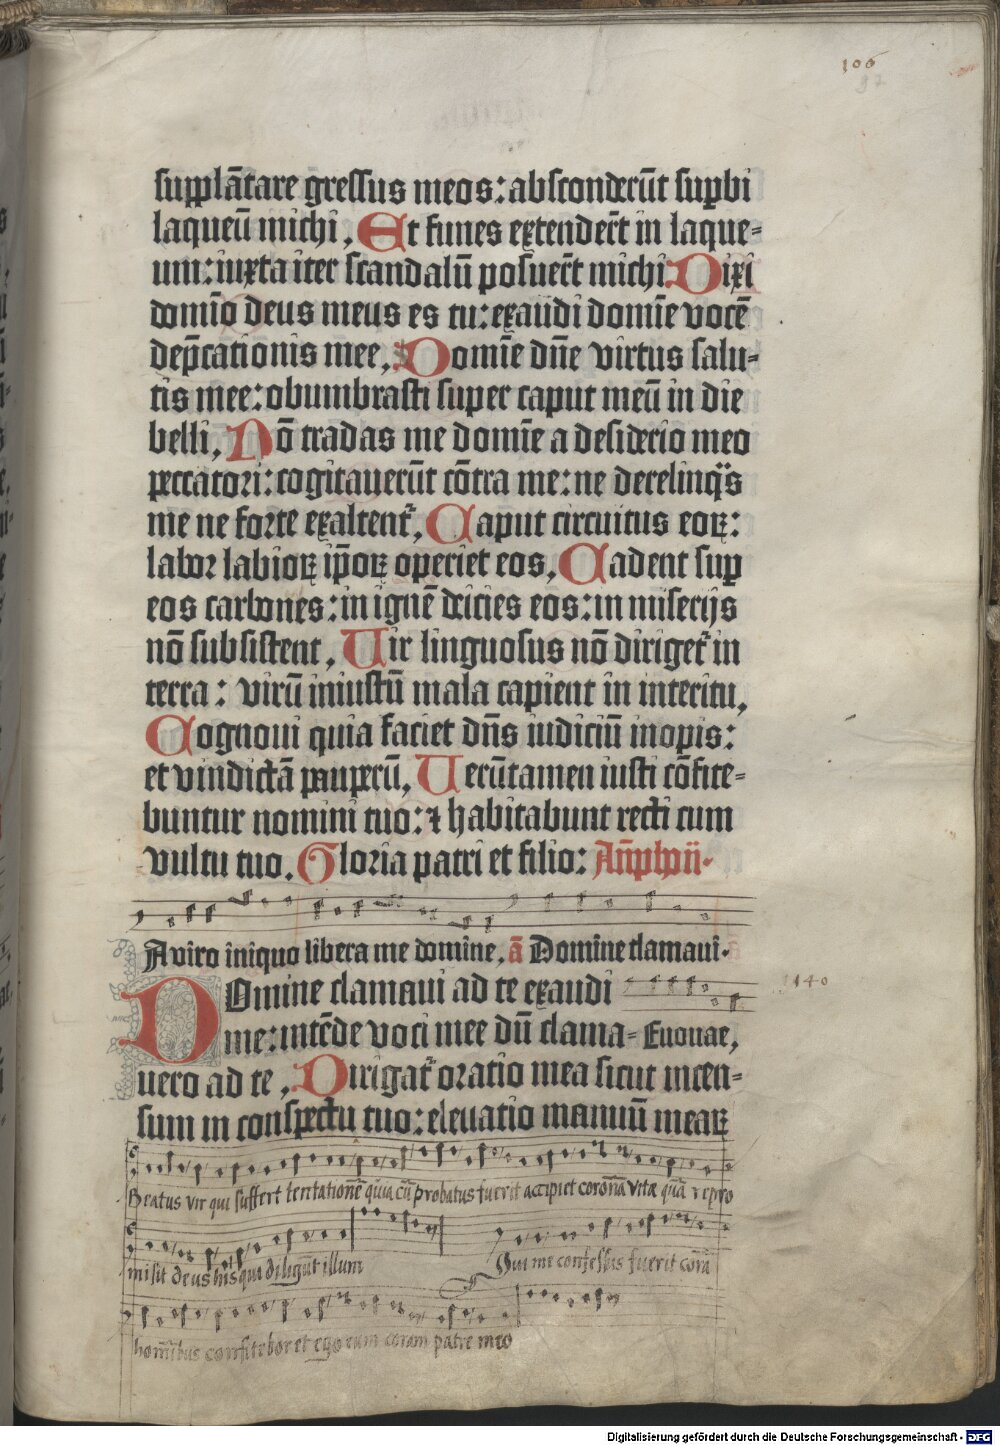 106
97
supplātare gressus meos: absconderūt suꝑbi
laqueū michi, Et funes extenderūt in laque=
um: iuxta iter scandalū posuerūt michi Dixi
domīo deus meus es tu: exaudi domīe vocē
dep̄cationis mee, Domīe dn̄e virtus salu=
tis mee: obumbrasti super caput meū in die
belli, Nō tradas me domīe a desiderio meo
peccatori: cogitauerūt cōtra me: ne derelinq̄s
me ne forte exaltent᷑, Caput circuitus eoꝝ:
labor labioꝝ ip̄oꝝ operiet eos, Cadent suꝑ
eos carbones: in ignē deicies eos: in miserijs
nō subsistent, Uir linguosus nō diriget᷑ in
terra: virū iniustū mala capient in interitu,
Cognoui quia faciet dn̄s iudiciū inopis:
et vindictā pauperū, Uerūtamen iusti cōfite=
buntur nomini tuo: ⁊ habitabunt recti cum
vultu tuo. Gloria patri et filio:
A viro iniquo libera me domine, ā Domine clamaui.
DOmine clamaui ad te exaudi
140
me: intēde voci mee dū clama= Euouae,
uero ad te, Dirigat᷑ oratio mea sicut incen=
sum in conspectu tuo: eleuatio manuū mearꝝ
Beatus vir qui suffert tentationē quia cū probatus fuerit accipiet coronā vitæ quā repro
misit deus his qui diligūt illum Qui me confessus fuerit corā
hom̄ibus confitebor et ego eum coram patre meo
Digitalisierung gefördert durch die Deutsche Forschungsgemeinschaft - DFG